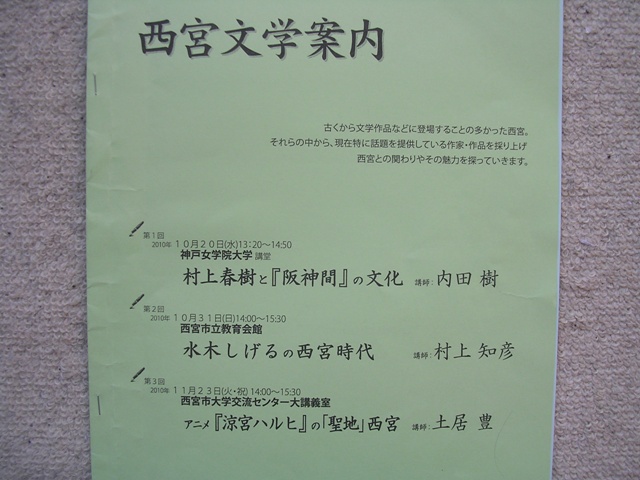 西宮文学案内
古くから文学作品などに登場することの多かった西宮。
それらの中から、現在特に話題を提供している作家・作品を採り上げ
西宮との関わりやその魅力を探っていきます。
第1回
2010年 10月20日(水)13:20～14:50
神戸女学院大学 講堂
村上春樹と『阪神間』の文化 講師：内田 樹
第2回
2010年 10月31日(日)14:00～15:30
西宮市立教育会館
水木しげるの西宮時代 講師：村上 知彦
第3回
2010年 11月23日(火・祝)14:00～15:30
西宮市大学交流センター大講義室
アニメ『涼宮ハルヒ』の「聖地」西宮 講師：土居 豊